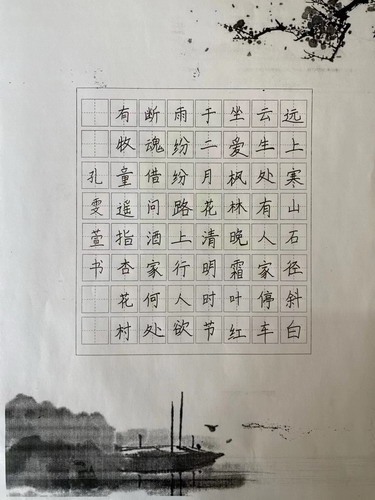 远上寒山石径斜白
云生处有人家停车
坐爱枫林晚霜叶红
于二月花清明时节
雨纷纷路上行人欲
断魂借问酒家何处
有牧童遥指杏花村
孔雯萱书